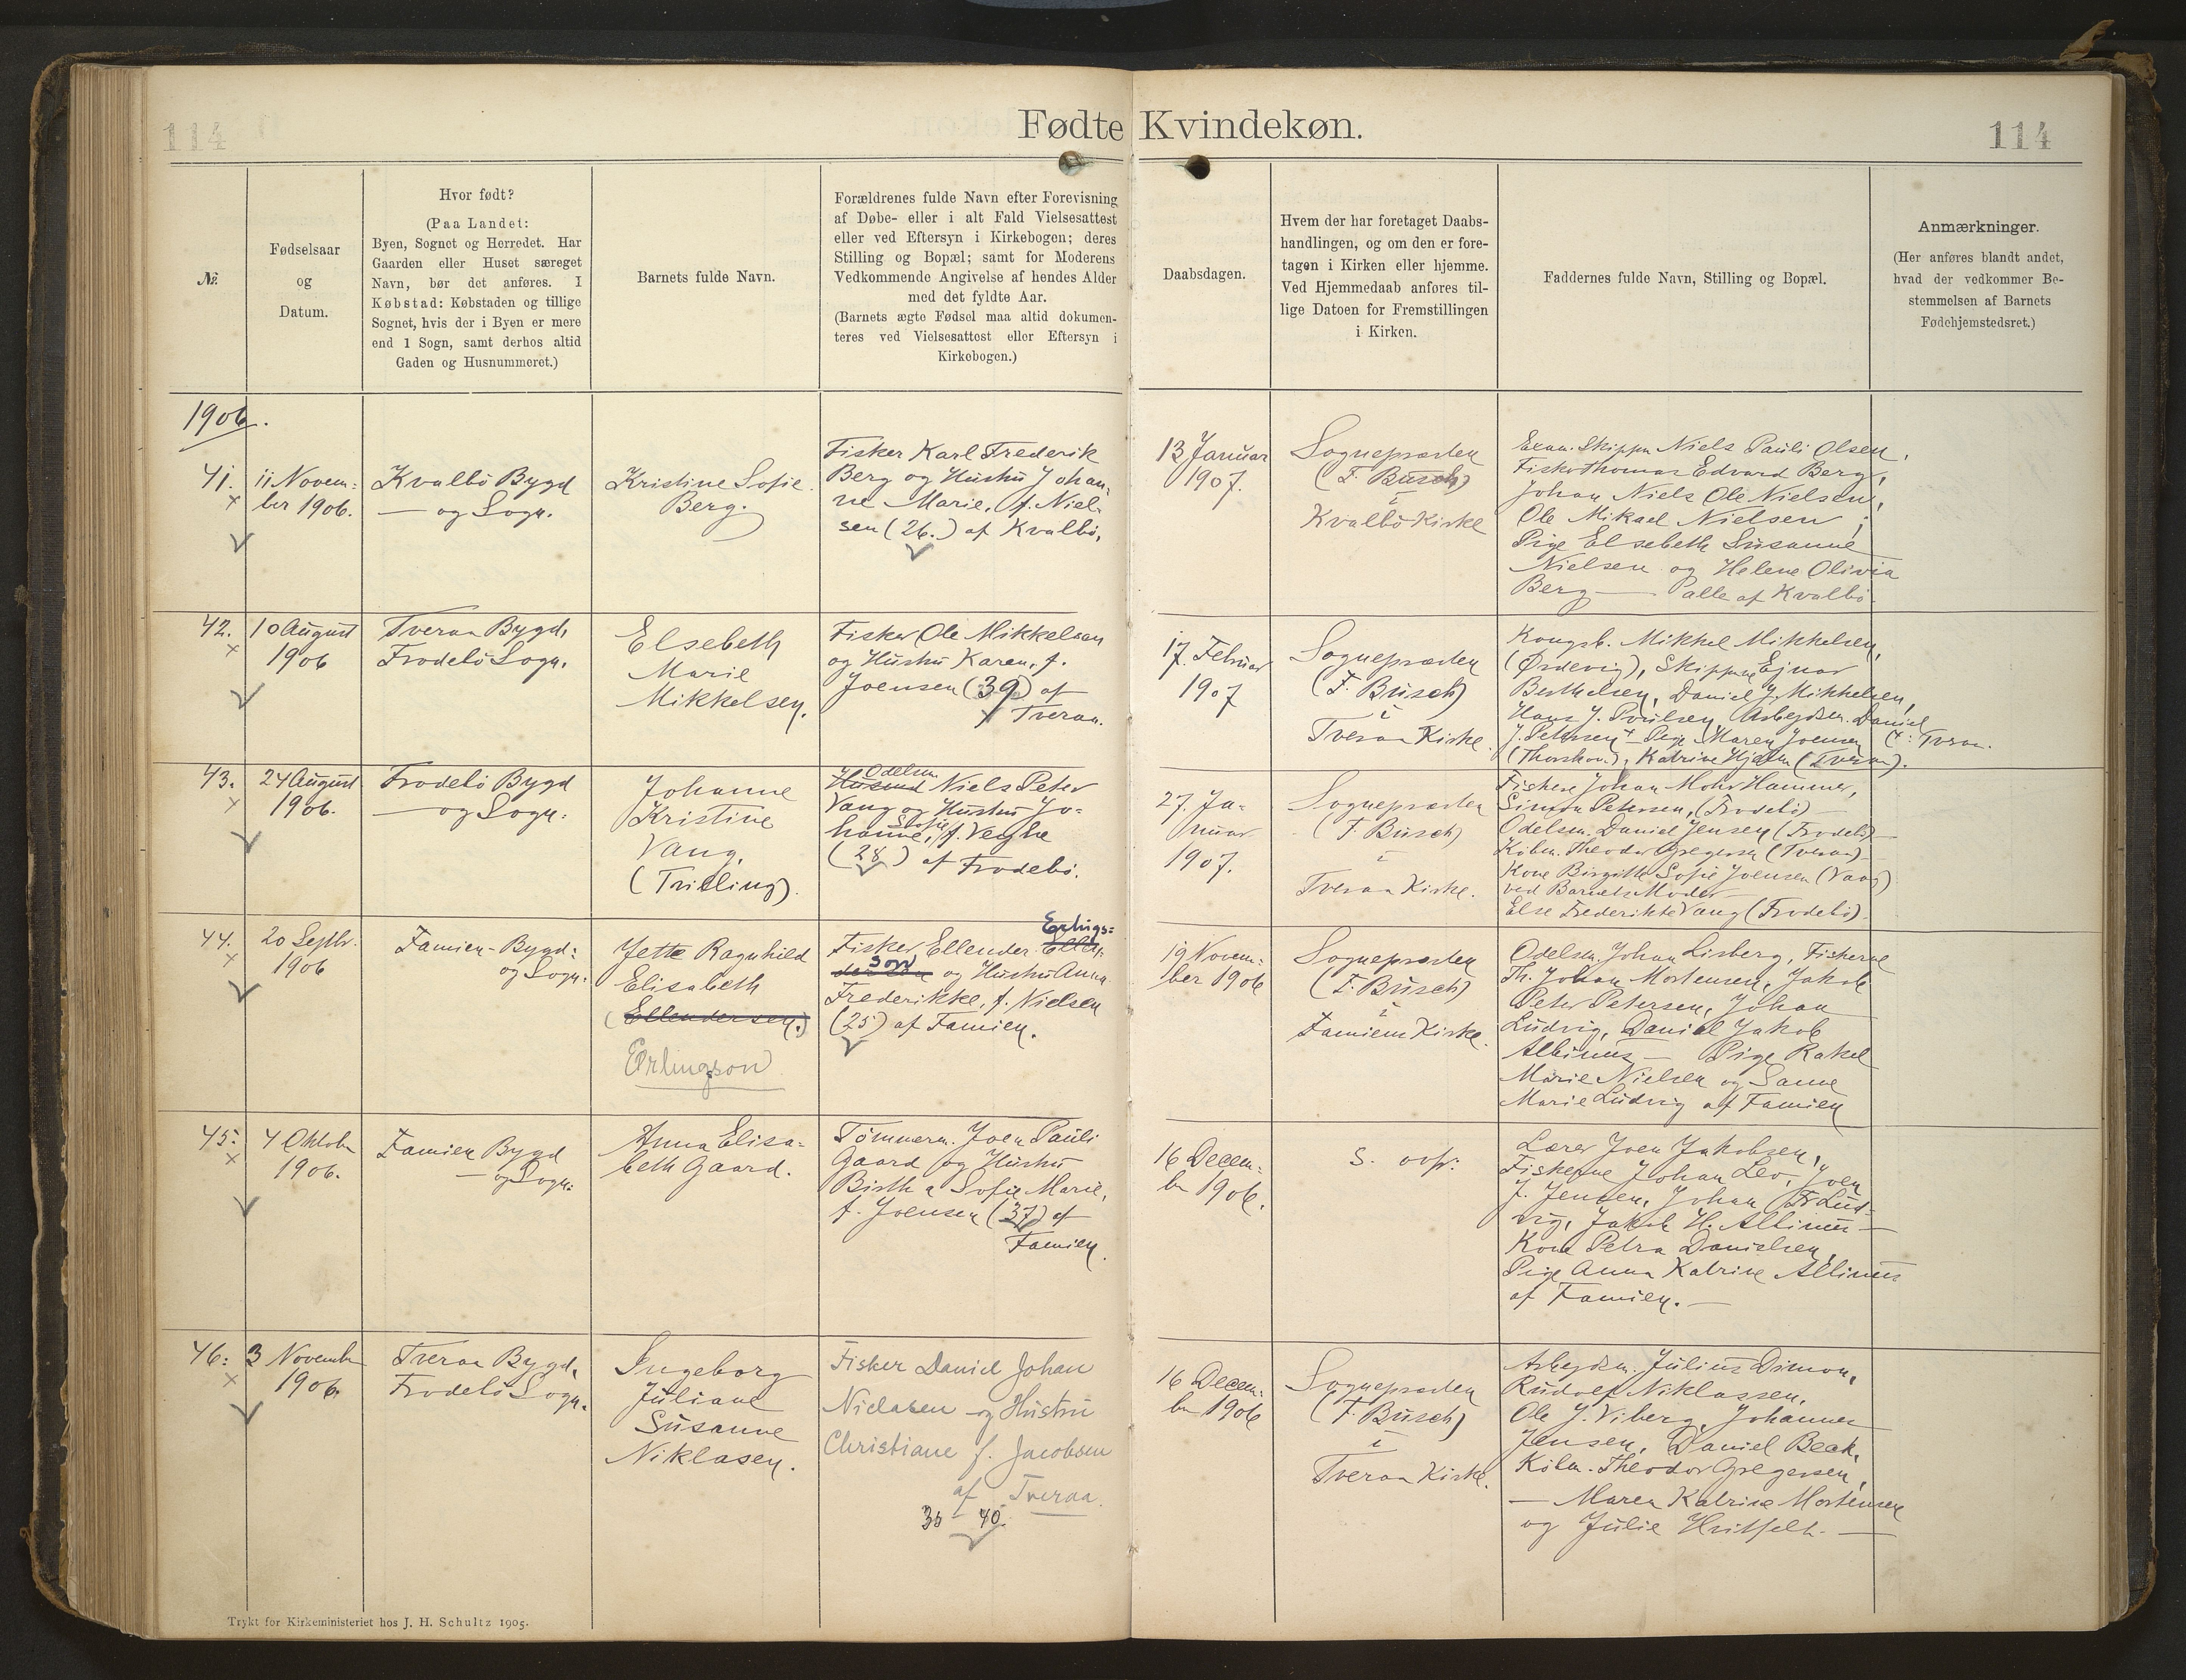 114
Fødte Kvindekøn.
114
№.
Fødselsaar
og
Datum.
Hvor født?
(Paa Landet:
Byen, Sognet og Herredet. Har
Gaarden eller Huset særeget
Navn, bør det anføres. I
Købstad: Købstaden og tillige
Sognet, hvis der i Byen er mere
end 1 Sogn, samt derhos altid
Gaden og Husnummeret.)
Barnets fulde Navn.
Forældrenes fulde Navn efter Forevisning
af Døbe- eller i alt Fald Vielsesattest
eller ved Eftersyn i Kirkebogen; deres
Stilling og Bopæl; samt for Moderens
Vedkommende Angivelse af hendes Alder
med det fyldte Aar.
(Barnets ægte Fødsel maa altid dokumen-
teres ved Vielsesattest eller Eftersyn i
Kirkebogen.)
Daabsdagen.
Hvem der har foretaget Daabs-
handlingen, og om den er fore-
tagen i Kirken eller hjemme.
Ved Hjemmedaab anføres til-
lige Datoen for Fremstillingen
i Kirken.
Faddernes fulde Navn, Stilling og Bopæl.
Anmærkninger.
(Her anføres blandt andet,
hvad der vedkommer Be-
stemmelsen af Barnets
Fødehjemstedsret.)
1906.
41.
×
11 Novem-
ber 1906.
Kvalbø Bygd
— og Sogn.
Kristine Sofie
Berg.
Fisker Karl Frederik
Berg og Hustru Johan-
ne Marie, f. Niel-
sen (26.) af Kvalbø.
13 Januar
1907.
Sognepræsten
(F. Busch)
i
Kvalbø Kirke
Exam. Skipper Niels Pauli Olsen,
Fisker Thomas Edvard Berg,
Johan Niels Ole Nielsen,
Ole Mikael Nielsen;
Pige Elsebeth Susanne
Nielsen og Helene Olivia
Berg — alle af Kvalbø
42.
×
10 August
1906
Tveraa Bygd,
Frodebø Sogn.
Elsebeth
Marie
Mikkelsen.
Fisker Ole Mikkelsen
og Hustru Karen, f.
Joensen (39) af
Tveraa.
17. Februar
1907
Sognepræsten
(F. Busch)
i
Tveraa Kirke.
Kongsb. Mikkel Mikkelsen,
(Ørdevig), Skipperne Ejnar
Berthelsen, Daniel J. Mikkelsen,
Hans J. Poulsen, Arbejdsm. Daniel
J. Petersen + — Pige Maren Joensen (+: Tveraa.
(Thorshavn), Katrine Hjelm (Tveraa).
43.
×
24 August
1906.
Frodebø Bygd
— og Sogn.
Johanne
Kristine
Vang.
(Trilling).
Odelsm.
Husmd Niels Peter
Vang og Hustru Jo-
hanne Sofie, f. Veyhe
(28) af Frodebø.
27. Ja-
nuar
1907.
Sognepræsten
(F. Busch)
i
Tveraa Kirke.
Fiskere Johan Mohr Hammer,
Simon Petersen, (Frodebø) —
Odelsm. Daniel Jensen (Frodebø) —
Købm. Theodor Gregersen (Tveraa) —
Kone Birgitte Sofie Joensen (Vaag)
ved Barnets Moder —
Else Frederikke Vang (Frodebø).
44.
×
20 Septbr.
1906
Famien-Bygd
og Sogn.
Jette Ragnhild
Elisabeth
(Ellendersen.)
Erlingson
Erlings-
Fisker Ellender Ellen-
son
dersen og Hustru Anna
Frederikke, f. Nielsen
(25) af Famien.
19 Novem-
ber 1906
Sognepræsten
(F. Busch)
i
Famiem Kirke.
Odelsm. Johan Lisberg, Fiskerne
Th. Johan Mortensen, Jakob
Peter Petersen, Johan
Ludvig, Daniel Jakob
Albinus — Pige Rakel
Marie Nielsen og Sanne
Marie Ludvig af Famien
45.
×
4 Oktober
1906.
Famien Bygd
— og Sogn.
Anna Elisa-
beth Gaard.
Tømmerm. Joen Pauli
Gaard og Hustru
Birtha Sofie Marie,
f. Joensen (37) af
Famien.
16 Decem-
ber 1906.
s. ovf.
Lærer Joen Jakobsen,
Fiskerne Johan Leo, Joen
J. Jensen, Johan Fr. Lud-
vig, Jakob H. Albinus —
Kone Petra Danielsen,
Pige Anna Katrine Albinus
af Famien. —
46.
×
3 November
1906.
Tveraa Bygd,
Frodebø Sogn.
Ingeborg
Juliane
Susanne
Niklasen.
Fisker Daniel Johan
Niclasen og Hustru
Christiane f. Jacobsen
af Tveraa.
35 - 40
16 Decem-
ber 1906
Sognepræsten
(F. Busch)
i
Tveraa Kirke.
Arbejdsm. Julius Dimon,
Rudolf Niklassen,
Ole J. Viberg, Johannes
Jensen, Daniel Beck,
Købm. Theodor Gregersen,
— Maren Katrine Mortensen
og Julie Hvitfelt. —
Trykt for Kirkeministeriet hos J. H. Schultz 1905.